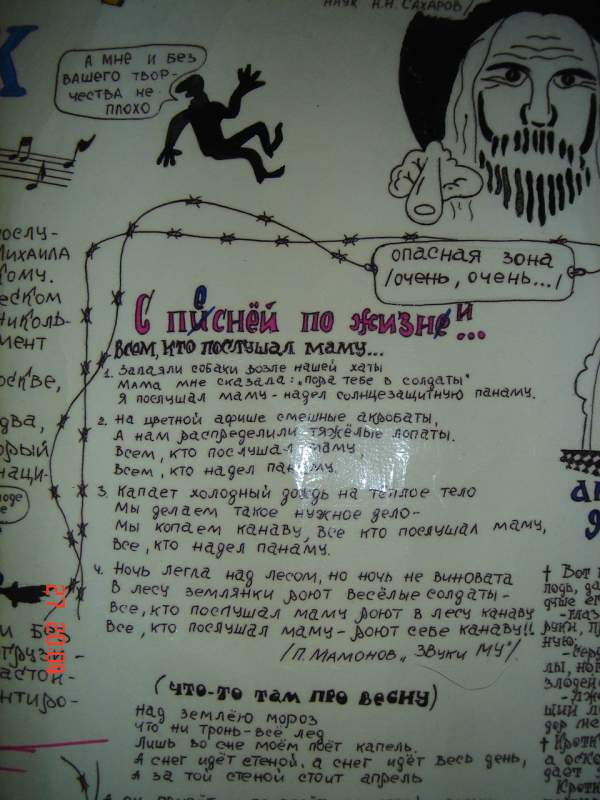 НАУК А.Н. САХАРОВ/
А МНЕ И БЕЗ
ВАШЕГО ТВОР-
ЧЕСТВА НЕ
ПЛОХО
К
ОПАСНАЯ ЗОНА
/ОЧЕНЬ, ОЧЕНЬ.../
ПОСЛУ-
МИХАИЛА
КОМУ.
ЕСКОМ
НИКОЛЬ-
МЕНТ
ОСКВЕ,
ДВА,
ОРЫЙ
НАЦИ-
С ПЕСНЕЙ ПО ЖИЗНИ...
ВСЕМ, КТО ПОСЛУШАЛ МАМУ...
1. ЗАЛАЯЛИ СОБАКИ ВОЗЛЕ НАШЕЙ ХАТЫ
МАМА МНЕ СКАЗАЛА: „ПОРА ТЕБЕ В СОЛДАТЫ"
Я ПОСЛУШАЛ МАМУ - НАДЕЛ СОЛНЦЕЗАЩИТНУЮ ПАНАМУ.
2. НА ЦВЕТНОЙ АФИШЕ СМЕШНЫЕ АКРОБАТЫ,
А НАМ РАСПРЕДЕЛИЛИ ТЯЖЁЛЫЕ ЛОПАТЫ.
ВСЕМ, КТО ПОСЛУШАЛ МАМУ,
ВСЕМ, КТО НАДЕЛ ПАНАМУ.
3. КАПАЕТ ХОЛОДНЫЙ ДОЖДЬ НА ТЁПЛОЕ ТЕЛО
МЫ ДЕЛАЕМ ТАКОЕ НУЖНОЕ ДЕЛО-
МЫ КОПАЕМ КАНАВУ, ВСЕ КТО ПОСЛУШАЛ МАМУ,
ВСЕ, КТО НАДЕЛ ПАНАМУ.
4. НОЧЬ ЛЕГЛА НАД ЛЕСОМ, НО НОЧЬ НЕ ВИНОВАТА
В ЛЕСУ ЗЕМЛЯНКИ РОЮТ ВЕСЁЛЫЕ СОЛДАТЫ-
ВСЕ, КТО ПОСЛУШАЛ МАМУ РОЮТ В ЛЕСУ КАНАВУ
ВСЕ, КТО ПОСЛУШАЛ МАМУ - РОЮТ СЕБЕ КАНАВУ!!
/П. МАМОНОВ „ЗВУКИ МУ"/
(ЧТО-ТО ТАМ ПРО ВЕСНУ)
НАД ЗЕМЛЁЮ МОРОЗ
ЧТО НИ ТРОНЬ - ВСЁ ЛЁД
ЛИШЬ ВО СНЕ МОЁМ ПОЁТ КАПЕЛЬ.
А СНЕГ ИДЁТ СТЕНОЙ, А СНЕГ ИДЁТ ВЕСЬ ДЕНЬ,
А ЗА ТОЙ СТЕНОЙ СТОИТ АПРЕЛЬ
† ВОТ
-ГЛАЗ
РУКИ,
НУЮ:
-СЕРД
ЗЛОДЕЙ
† КРОТК